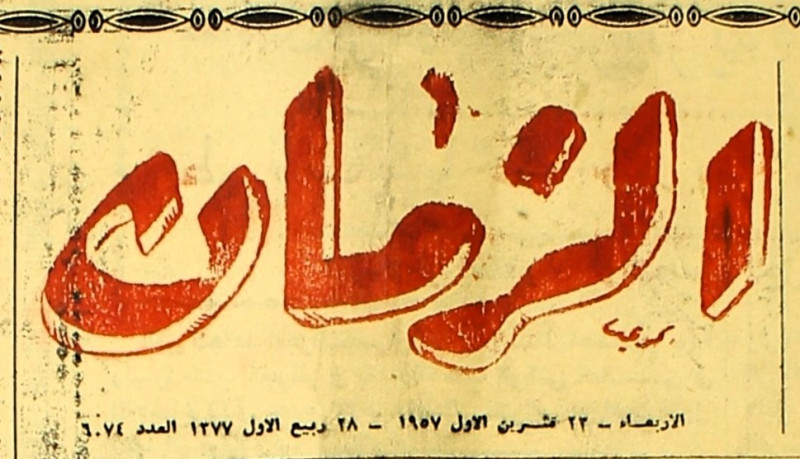 الزمان
الاربعاء - ٢٣ تشرين الاول ١٩٥٧ - ٢٨ ربيع الاول ١٣٧٧ العدد ٦٠٧٤